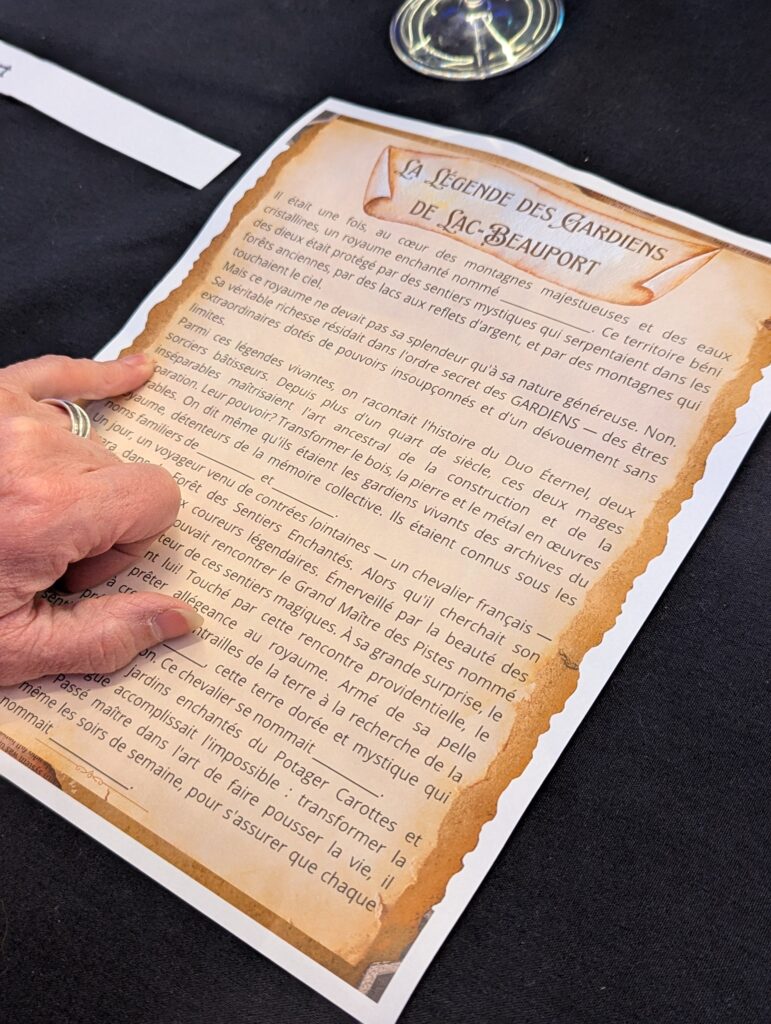 LA LÉGENDE DES GARDIENS
DE LAC-BEAUPORT
Il était une fois, au cœur des montagnes majestueuses et des eaux
cristallines, un royaume enchanté nommé ____________. Ce territoire béni
des dieux était protégé par des sentiers mystiques qui serpentaient dans les
forêts anciennes, par des lacs aux reflets d'argent, et par des montagnes qui
touchaient le ciel.
Mais ce royaume ne devait pas sa splendeur qu'à sa nature généreuse. Non.
Sa véritable richesse résidait dans l'ordre secret des GARDIENS — des êtres
extraordinaires dotés de pouvoirs insoupçonnés et d'un dévouement sans
limites.
Parmi ces légendes vivantes, on racontait l'histoire du Duo Éternel, deux
sorciers bâtisseurs. Depuis plus d'un quart de siècle, ces deux mages
inséparables maîtrisaient l'art ancestral de la construction et de la
paration. Leur pouvoir? Transformer le bois, la pierre et le métal en œuvres
rables. On dit même qu'ils étaient les gardiens vivants des archives du
yaume, détenteurs de la mémoire collective. Ils étaient connus sous les
noms familiers de ________ et ________.
Un jour, un voyageur venu de contrées lointaines — un chevalier français —
ara dans Forêt des Sentiers Enchantés. Alors qu'il cherchait son
x coureurs légendaires. Émerveillé par la beauté des
ouvait rencontrer le Grand Maître des Pistes nommé
teur de ces sentiers magiques. À sa grande surprise, le
nt lui! Touché par cette rencontre providentielle, le
prêter allégeance au royaume. Armé de sa pelle
à cr ntrailles de la terre à la recherche de la
____, cette terre dorée et mystique qui
on. Ce chevalier se nommait __________.
jardins enchantés du Potager Carottes et
gue accomplissait l'impossible : transformer la
Passé maître dans l'art de faire pousser la vie, il
même les soirs de semaine, pour s'assurer que chaque
nommait __________.